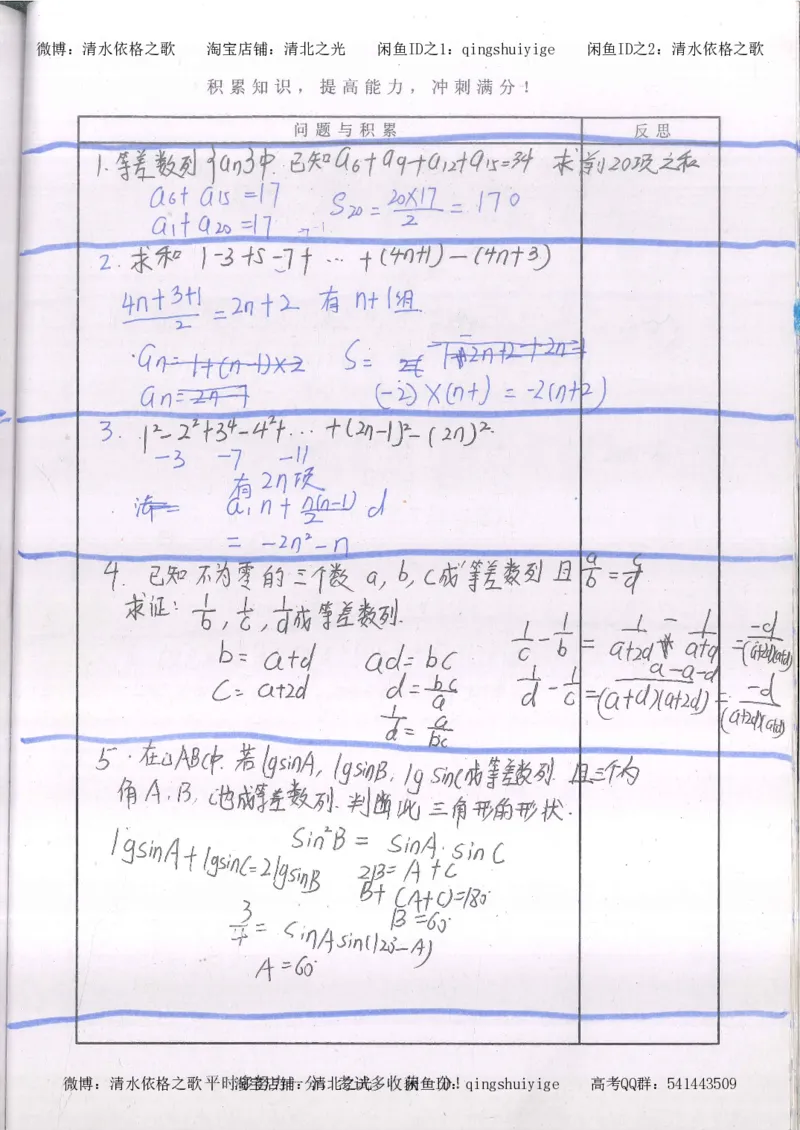 微博：清水依格之歌 淘宝店铺：清北之光 闲鱼ID之1：qingshuiyige 闲鱼ID之2：清水依格之歌
积累知识，提高能力，冲刺满分！
问题与积累 反思
1.等差数列{an}中.已知a6+a9+a12+a15=34 求前20项之和
a6+a15=17
S20=20×17/2=170
a1+a20=17
2.求和 1-3+5-7+…+(4n+1)-(4n+3)
4n+3+1/2=2n+2 有n+1组
an=1+(n-1)×2 S=
an=2n-1 (-2)×(n+)=-2(n+2)
3. 1²-2²+3⁴-4²+…+(2n-1)²-(2n)²
-3 -7 -11
有2n项
a1n+n(n-1)/2 d
=-2n²-n
4.已知不为零的三个数a,b,c成等差数列且a/b=c/d
求证：1/b,1/c,1/d成等差数列.
b=a+d ad=bc 1/c-1/b=1/a+2d-1/a+d=-d/(a+2d)(a+d)
c=a+2d d=bc/a 1/d-1/c=a-a-d/(a+d)(a+2d)=-d/(a+2d)(a+d)
1/d=a/bc
5.在△ABC中.若lgsinA,lgsinB,lgsinC成等差数列.且三个内
角A,B,C也成等差数列.判断此三角形的形状.
lgsinA+lgsinC=2lgsinB sin²B=sinA·sinC
2B=A+C
B+(A+C)=180°
B=60°
3/4=sinAsin(120°-A)
A=60°
微博：清水依格之歌 平时 淘宝店铺：清北之光 多收获 闲鱼ID：qingshuiyige 高考QQ群：541443509